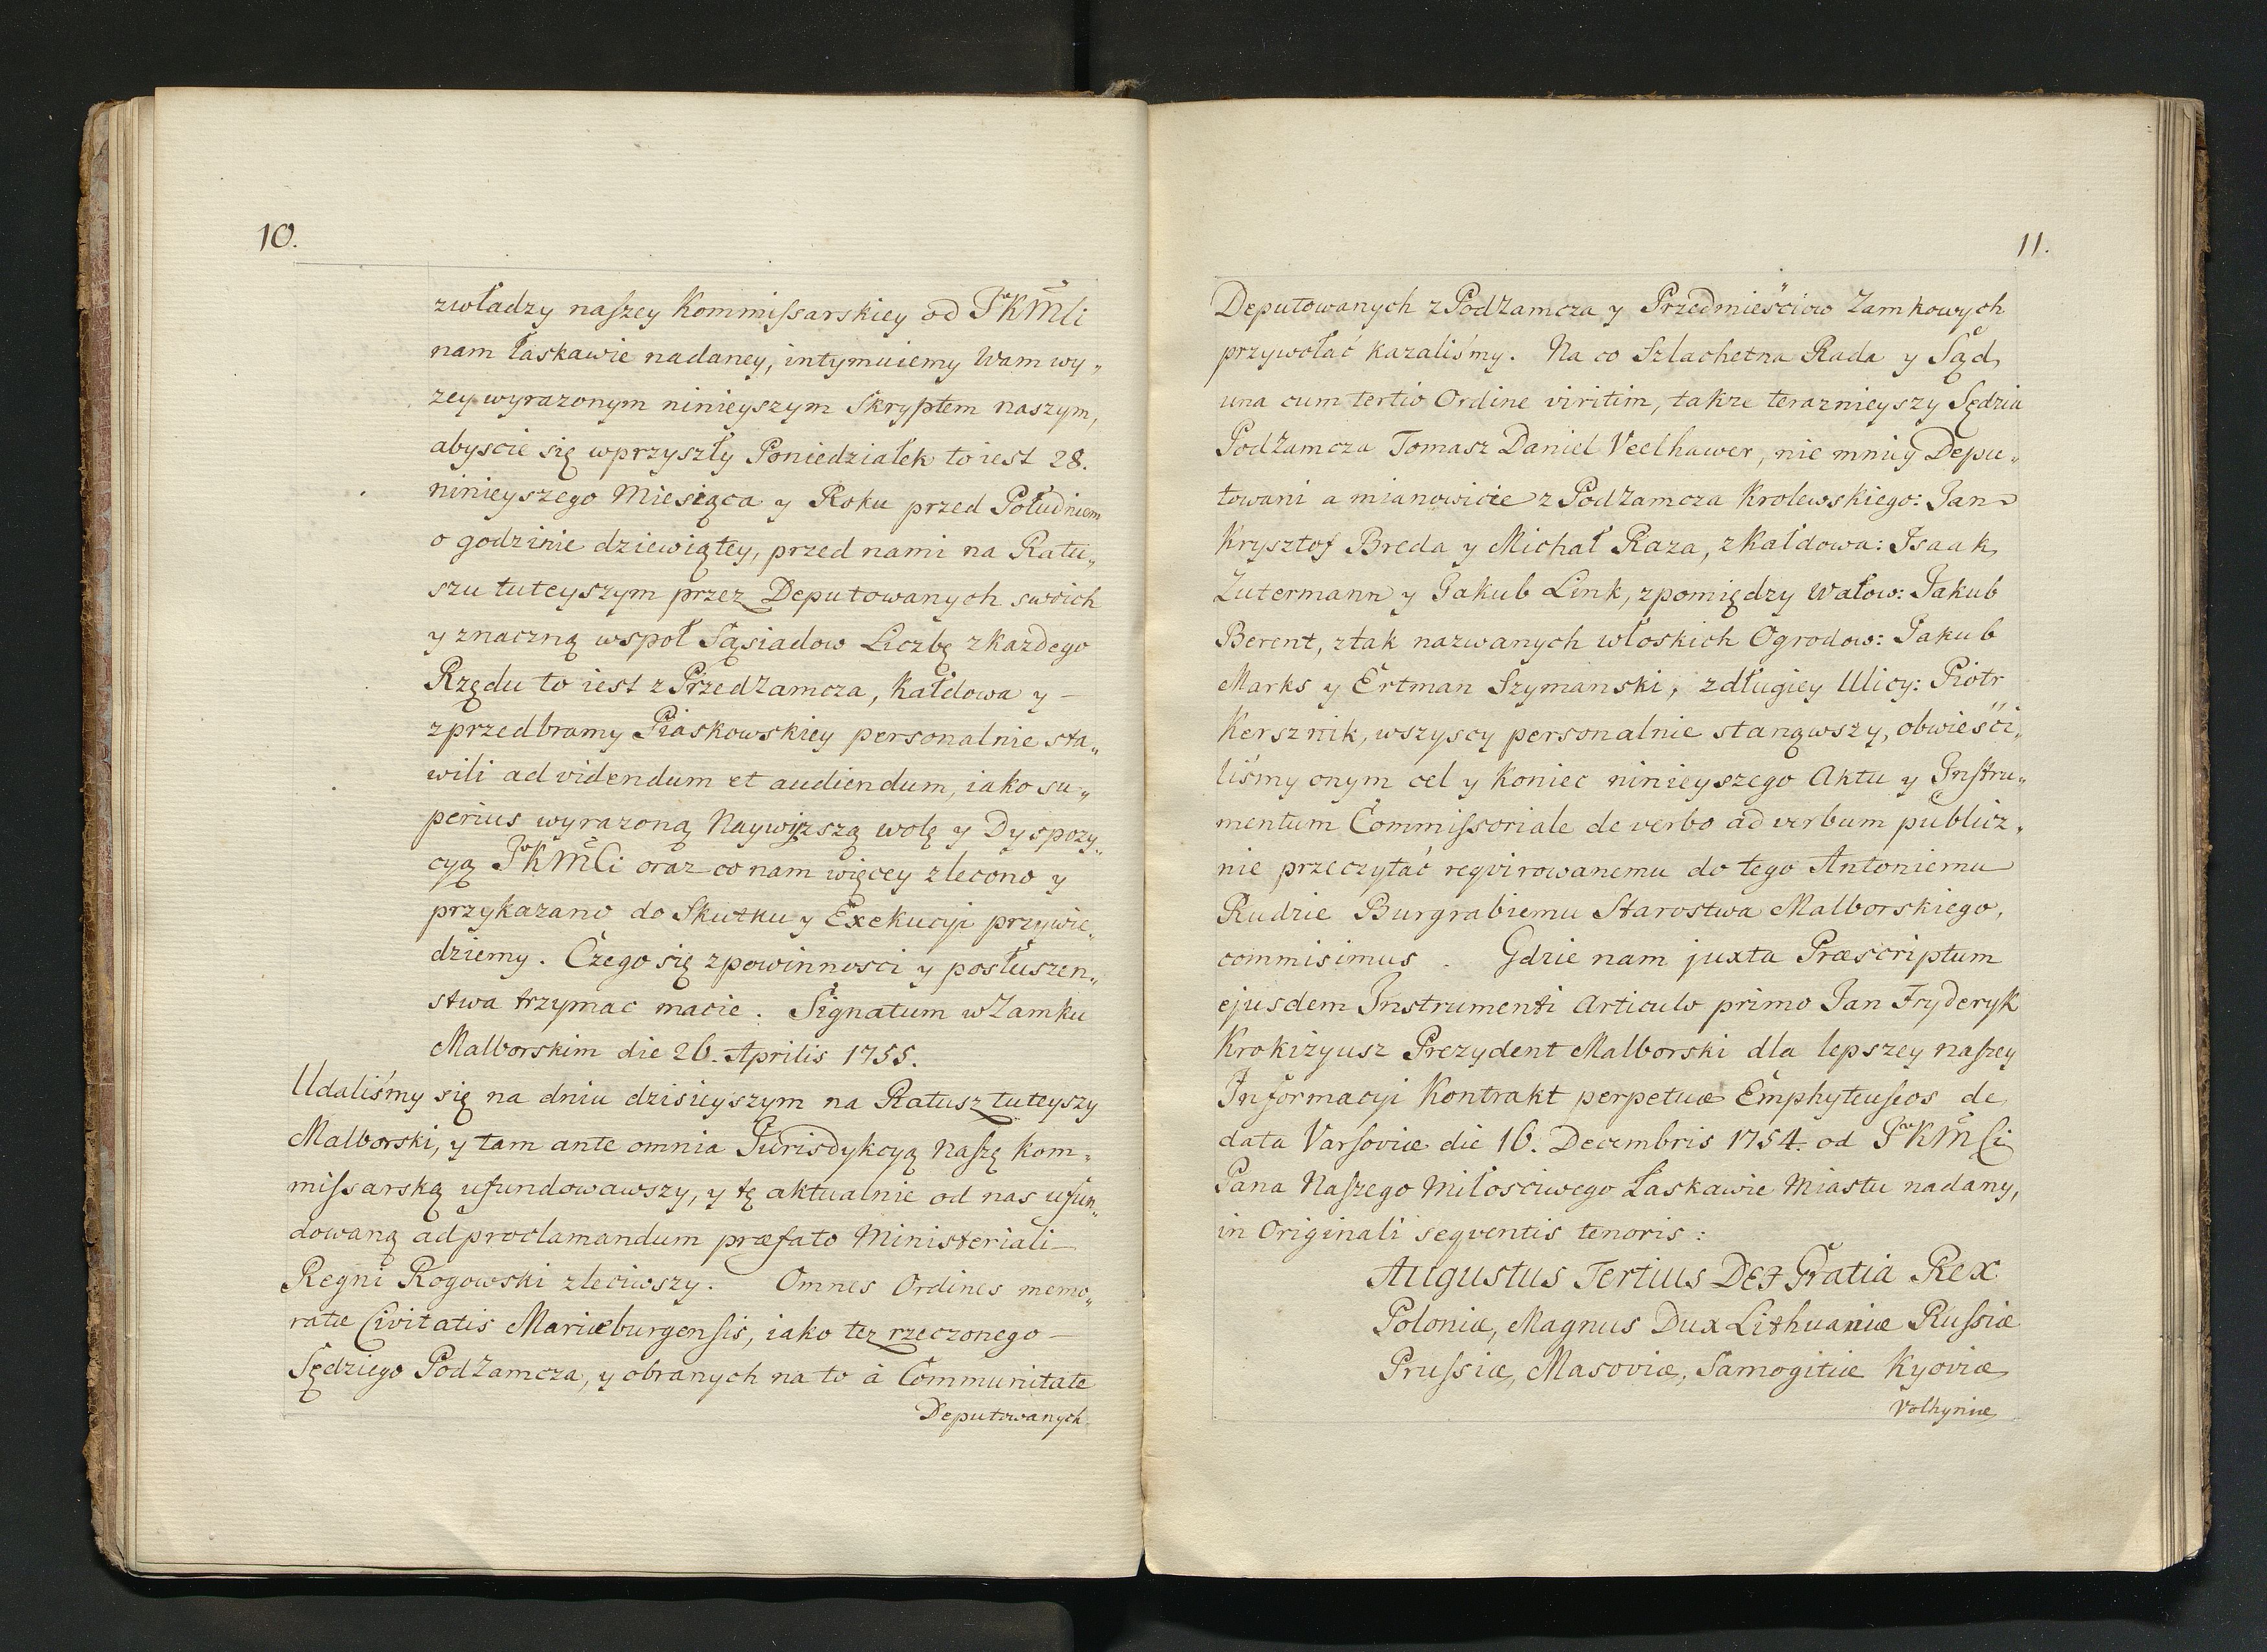 10.
zwładzy naſzey Kommiſsarskiey od JKMCi
nam łaskawie nadaney, intymuiemy Wam wy„
zey wyrazonym ninieyszym Skryptem naszym,
abyscie się wprzyszły Poniedziałek to iest 28.
ninieyszego Miesiąca y Roku przed Południem
o godzinie dziewiątey, przed nami na Ratu„
szu tuteyszym przez Deputowanych swoich
y znaczną wspoł Sąsiadow Liczbę zkazdego
Rzędu to iest z PrzedZamcza, Kałdowa y –
zprzedbramy Piaskowskiey personalnie sta„
wili ad videndum et audiendum, iako su„
perius wyrazoną Naywyższą wolę y Dyspozy„
cyą JKMCi oraz co nam więcey zlecono y
przykazano do Skutku y Exekucyi przywie„
dziemy. Czego się zpowinnosci y posłuszen„
stwa trzymac macie. Signatum wZamku
Malborskim die 26. Aprilis 1755.
Udaliśmy się na dniu dzisieyszym na Ratusz tuteyszy
Malborski, y tam ante omnia Jurisdykcyą Naſzę Kom„
miſsarską ufundowawszy, y tę aktualnie od nas ufun„
dowaną ad proclamandum præfato Ministeriali –
Regni Rogowski zleciwszy. Omnes Ordines memo„
ratæ Civitatis Mariæburgenſis, iako tez rzeczonego –
Sędziego PodZamcza, y obranych na to à Communitate
Deputowanych
11.
Deputowanych z PodZamcza y Przedmieściow Zamkowych
przywołać kazaliśmy. Na co Szlachetna Rada y Sąd
una cum tertio Ordine viritim, takze teraznieyszy Sędzia
PodZamcza Tomasz Daniel Veelhawer, nie mniey Depu„
towani a mianowicie z PodZamcza Krolewskiego: Jan
Krysztof Breda y Michał Raza, zKałdowa: Isaak
Zutermann y Jakub Link, zpomiędzy Wałow: Jakub
Berent, ztak nazwanych włoskich Ogrodow: Jakub
Marks y Ertman Szymanski, zdługiey Ulicy: Piotr
Kersznik, wszyscy personalnie stanąwszy, obwieści„
liśmy onym cel y Koniec ninieyszego Aktu y Inſtru„
mentum Commiſsoriale de verbo ad verbum publicz„
nie przeczytać reqvirowanemu do tego Antoniemu
Rudzie Burgrabiemu Starostwa Malborskiego,
commisimus. Gdzie nam juxta Præscriptum
ejusdem Instrumenti Articulo primo Jan Fryderyk
Krokizyusz Prezydent Malborski dla lepszey naſzey
Informacyi Kontrakt perpetuæ Emphyteuſeos de
data Varſoviæ die 16. Decembris 1754. od JKMCi
Pana Naſzego Miłosciwego Łaskawie Miastu nadany,
in Originali seqventis tenoris:
Augustus Tertius DEI Gratia Rex
Poloniæ, Magnus Dux Lithuaniæ Ruſsiæ
Pruſsiæ, Masoviæ, Samogitiæ Kyoviæ
Volhyniæ